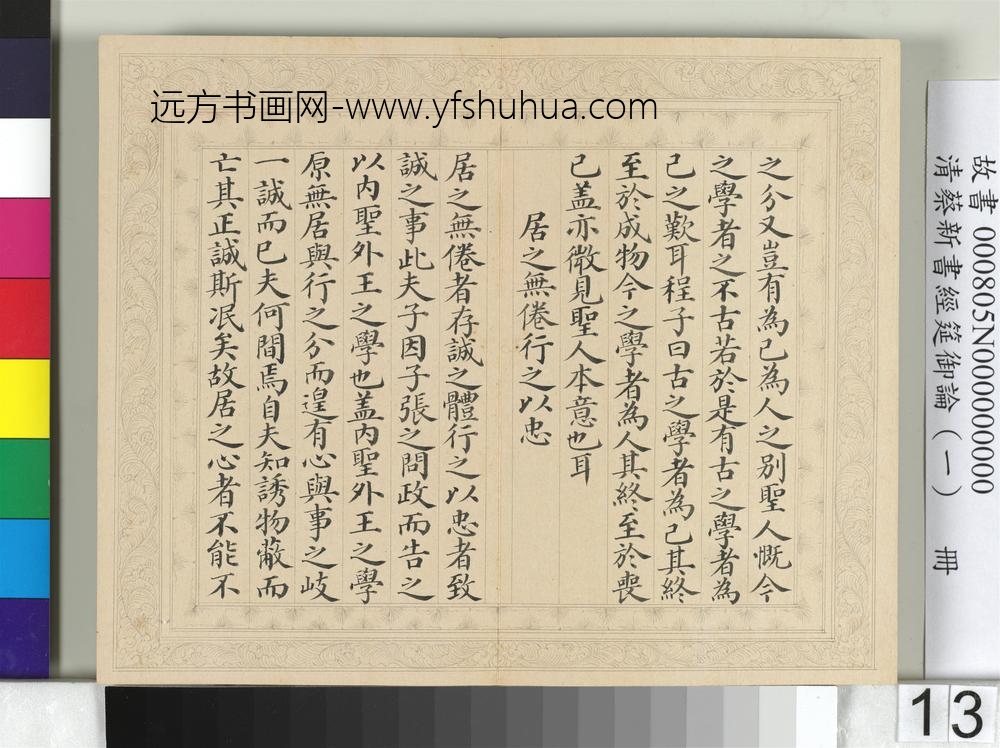 远方书画网-www.yfshuhua.com
之分又豈有為己為人之別聖人慨今
之學者之不古若於是有古之學者為
己之歎耳程子曰古之學者為己其終
至於成物今之學者為人其終至於喪
己盖亦微見聖人本意也耳
居之無倦行之以忠
居之無倦者存誠之體行之以忠者致
誠之事此夫子因子張之問政而告之
以内聖外王之學也盖内聖外王之學
原無居與行之分而遑有心與事之岐
一誠而已夫何間焉自夫知誘物蔽而
亡其正誠斯冺矣故居之心者不能不
故書 000805N000000000
清蔡新書經筵御論（一） 冊
13